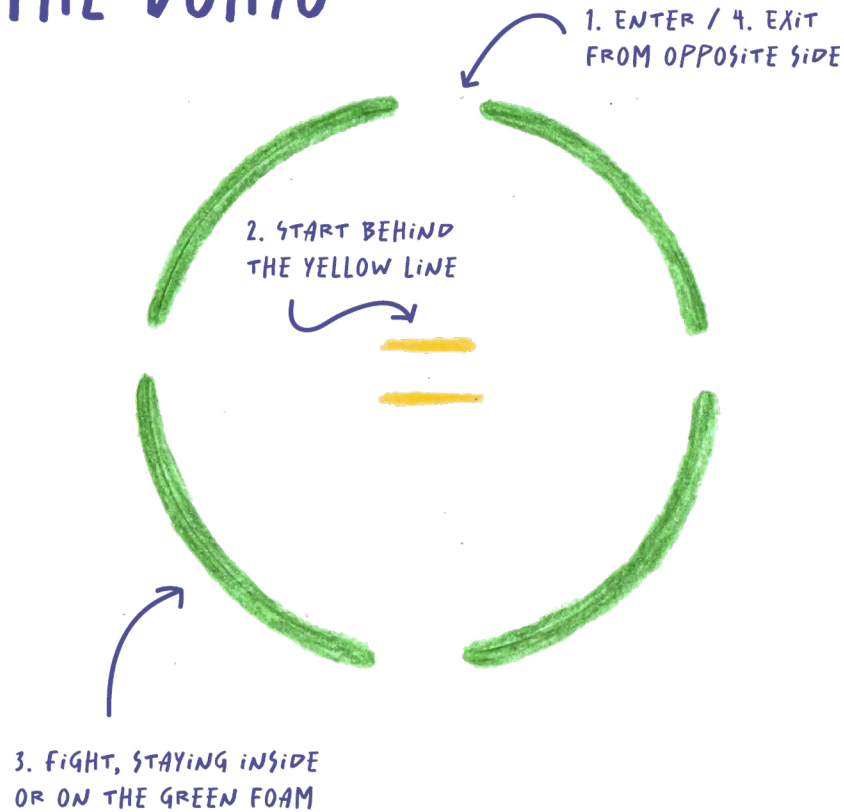 THE DOHYO
1. ENTER / 4. EXIT
FROM OPPOSITE SIDE
2. START BEHIND
THE YELLOW LINE
3. FIGHT, STAYING INSIDE
OR ON THE GREEN FOAM